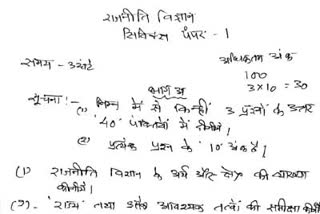 राजनीति विज्ञान
पेपर - 1
समय - 3 घंटे
अधिकतम अंक
100
भाग अ
3 x 10 = 30
सूचना :- (1) निम्न में से किन्हीं 3 प्रश्नों के उत्तर
'40' पंक्तियों में दीजिये।
(2) प्रत्येक प्रश्न के '10' अंक है।
(1) राजनीति विज्ञान के अर्थ और क्षेत्र की व्याख्या
कीजिये।
(2) 'राज्य' तथा उसके आवश्यक तत्वों की समीक्षा कीजिये